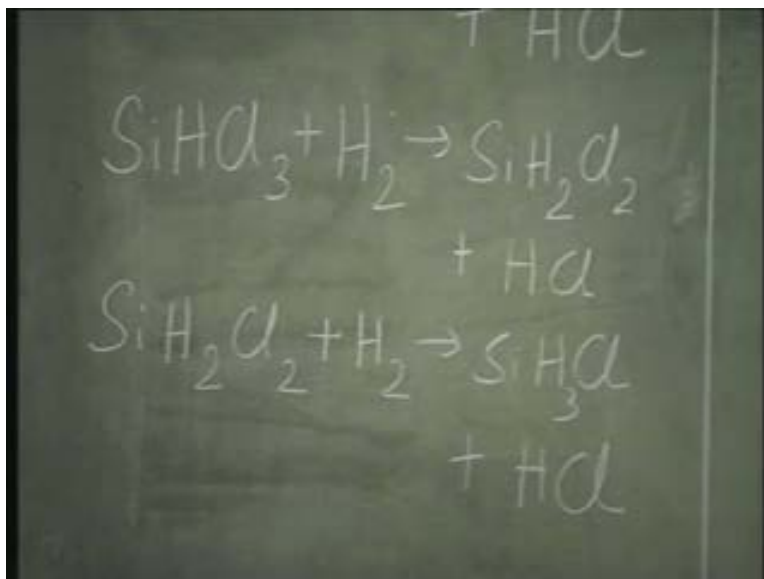 + HCl
SiHCl₃ + H₂ → SiH₂Cl₂
+ HCl
SiH₂Cl₂ + H₂ → SiH₃Cl
+ HCl